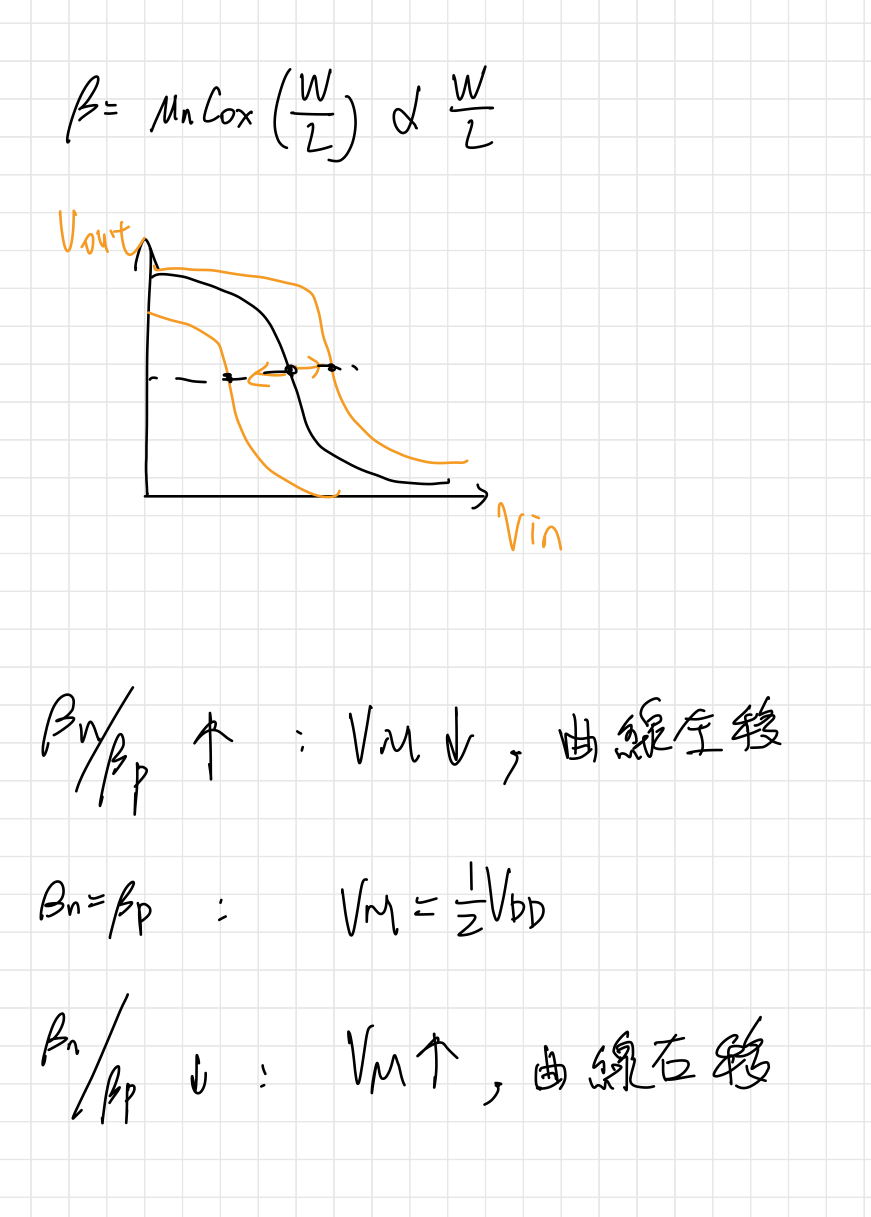 β = μnCox (W/L) ∝ W/L
Vout
Vin
βn/βp ↑ : VM ↓ , 曲線左移
βn = βp : VM = 1/2 VDD
βn/βp ↓ : VM ↑ , 曲線右移